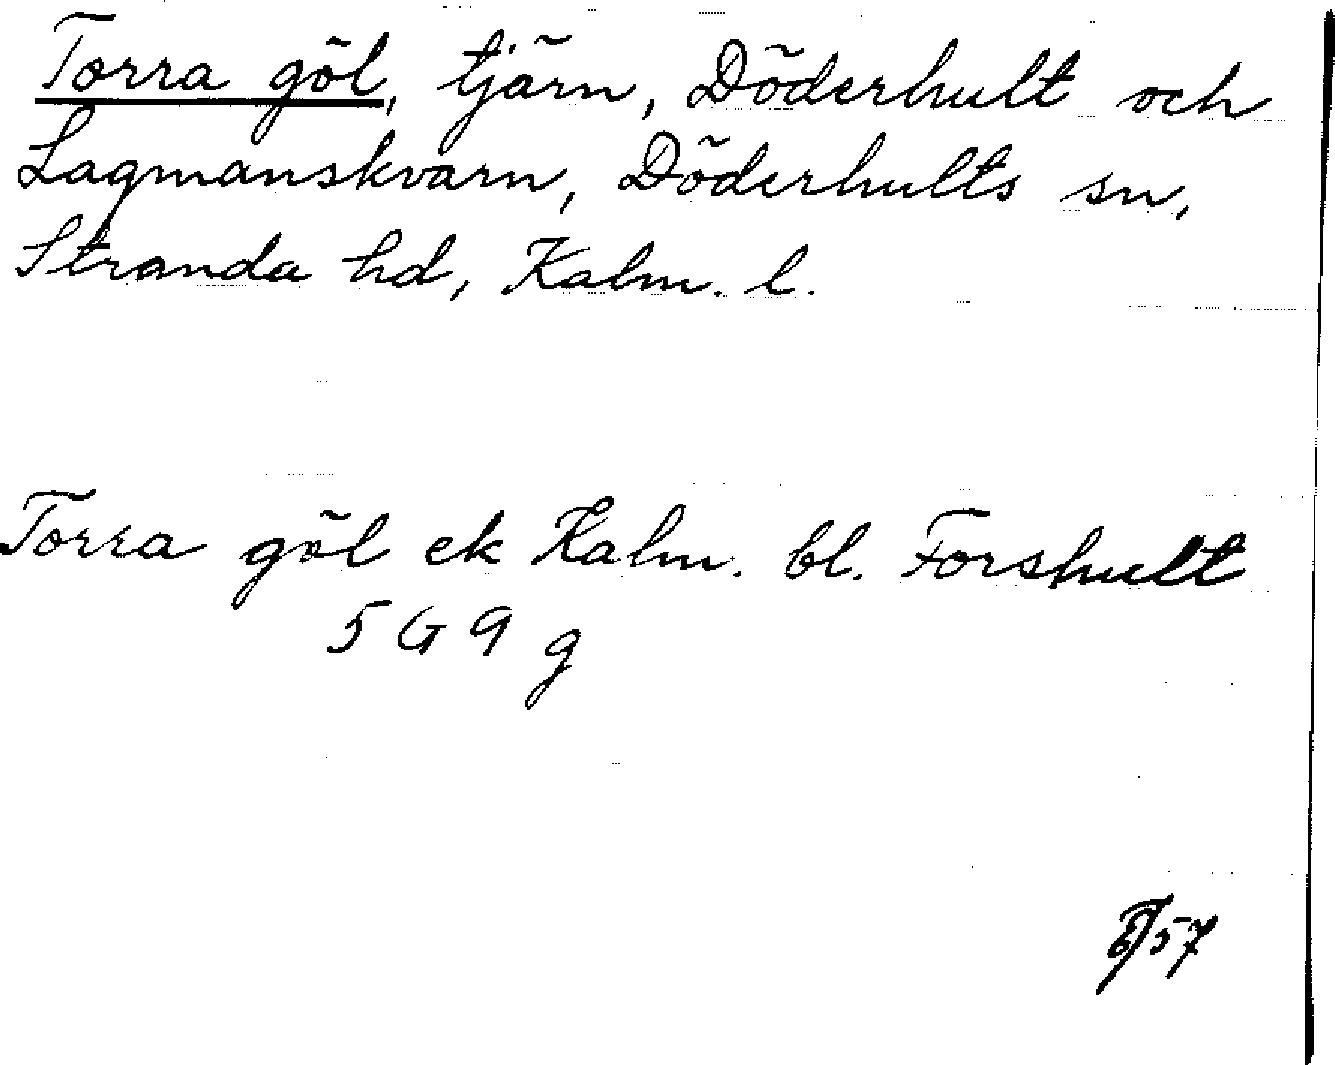 Torra göl, tjärn, Döderhult och
Lagmanskvarn, Döderhults sn,
Stranda hd, Kalm. l.
Torra göl ek Kalm. bl. Forshult
5 G 9 g
57